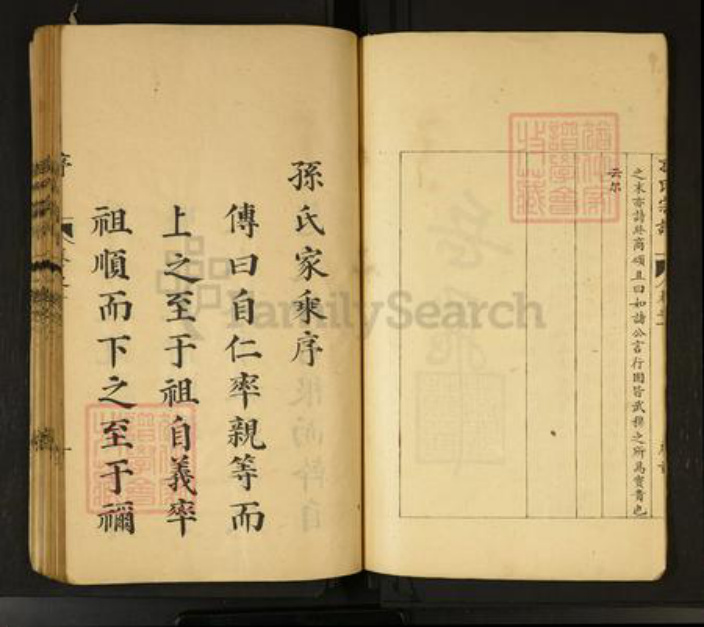 之末亦詩終商頌且曰如諸公言行固皆武穆之所爲寶貴也
云尔
孫氏家乘序
傳曰自仁率親等而
上之至于祖自義率
祖順而下之至于禰
FamilySearch